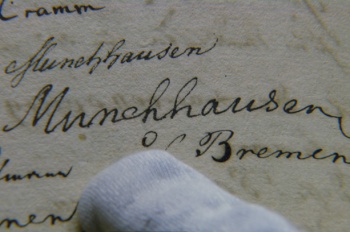 Cramm
Munchhausen
Munchhausen
v Bremen
nen